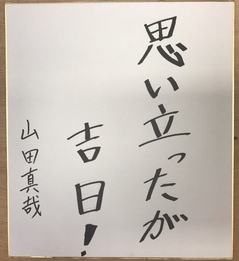 思い立ったが
吉日!
山田真哉